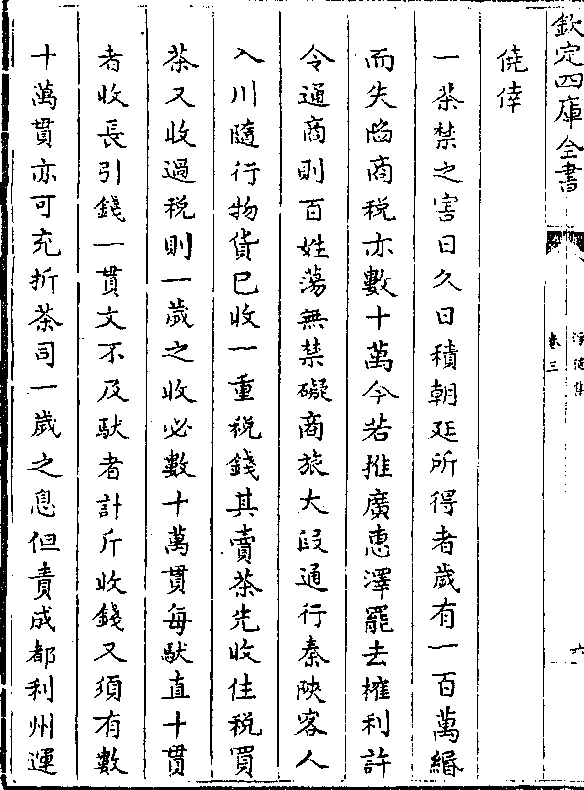 欽定四庫全書
淨德集
卷三
六
僥倖
一茶禁之害日久日積朝廷所得者歲有一百萬緡
而失陷商稅亦數十萬今若推廣惠澤罷去榷利許
令通商則百姓蕩無禁礙商旅大段通行秦陜客人
入川隨行物貨已收一重稅錢其賣茶先收住稅買
茶又收過稅則一歲之收必數十萬貫每馱直十貫
者收長引錢一貫文不及馱者計斤收錢又須有數
十萬貫亦可充折茶司一歲之息但責成都利州運